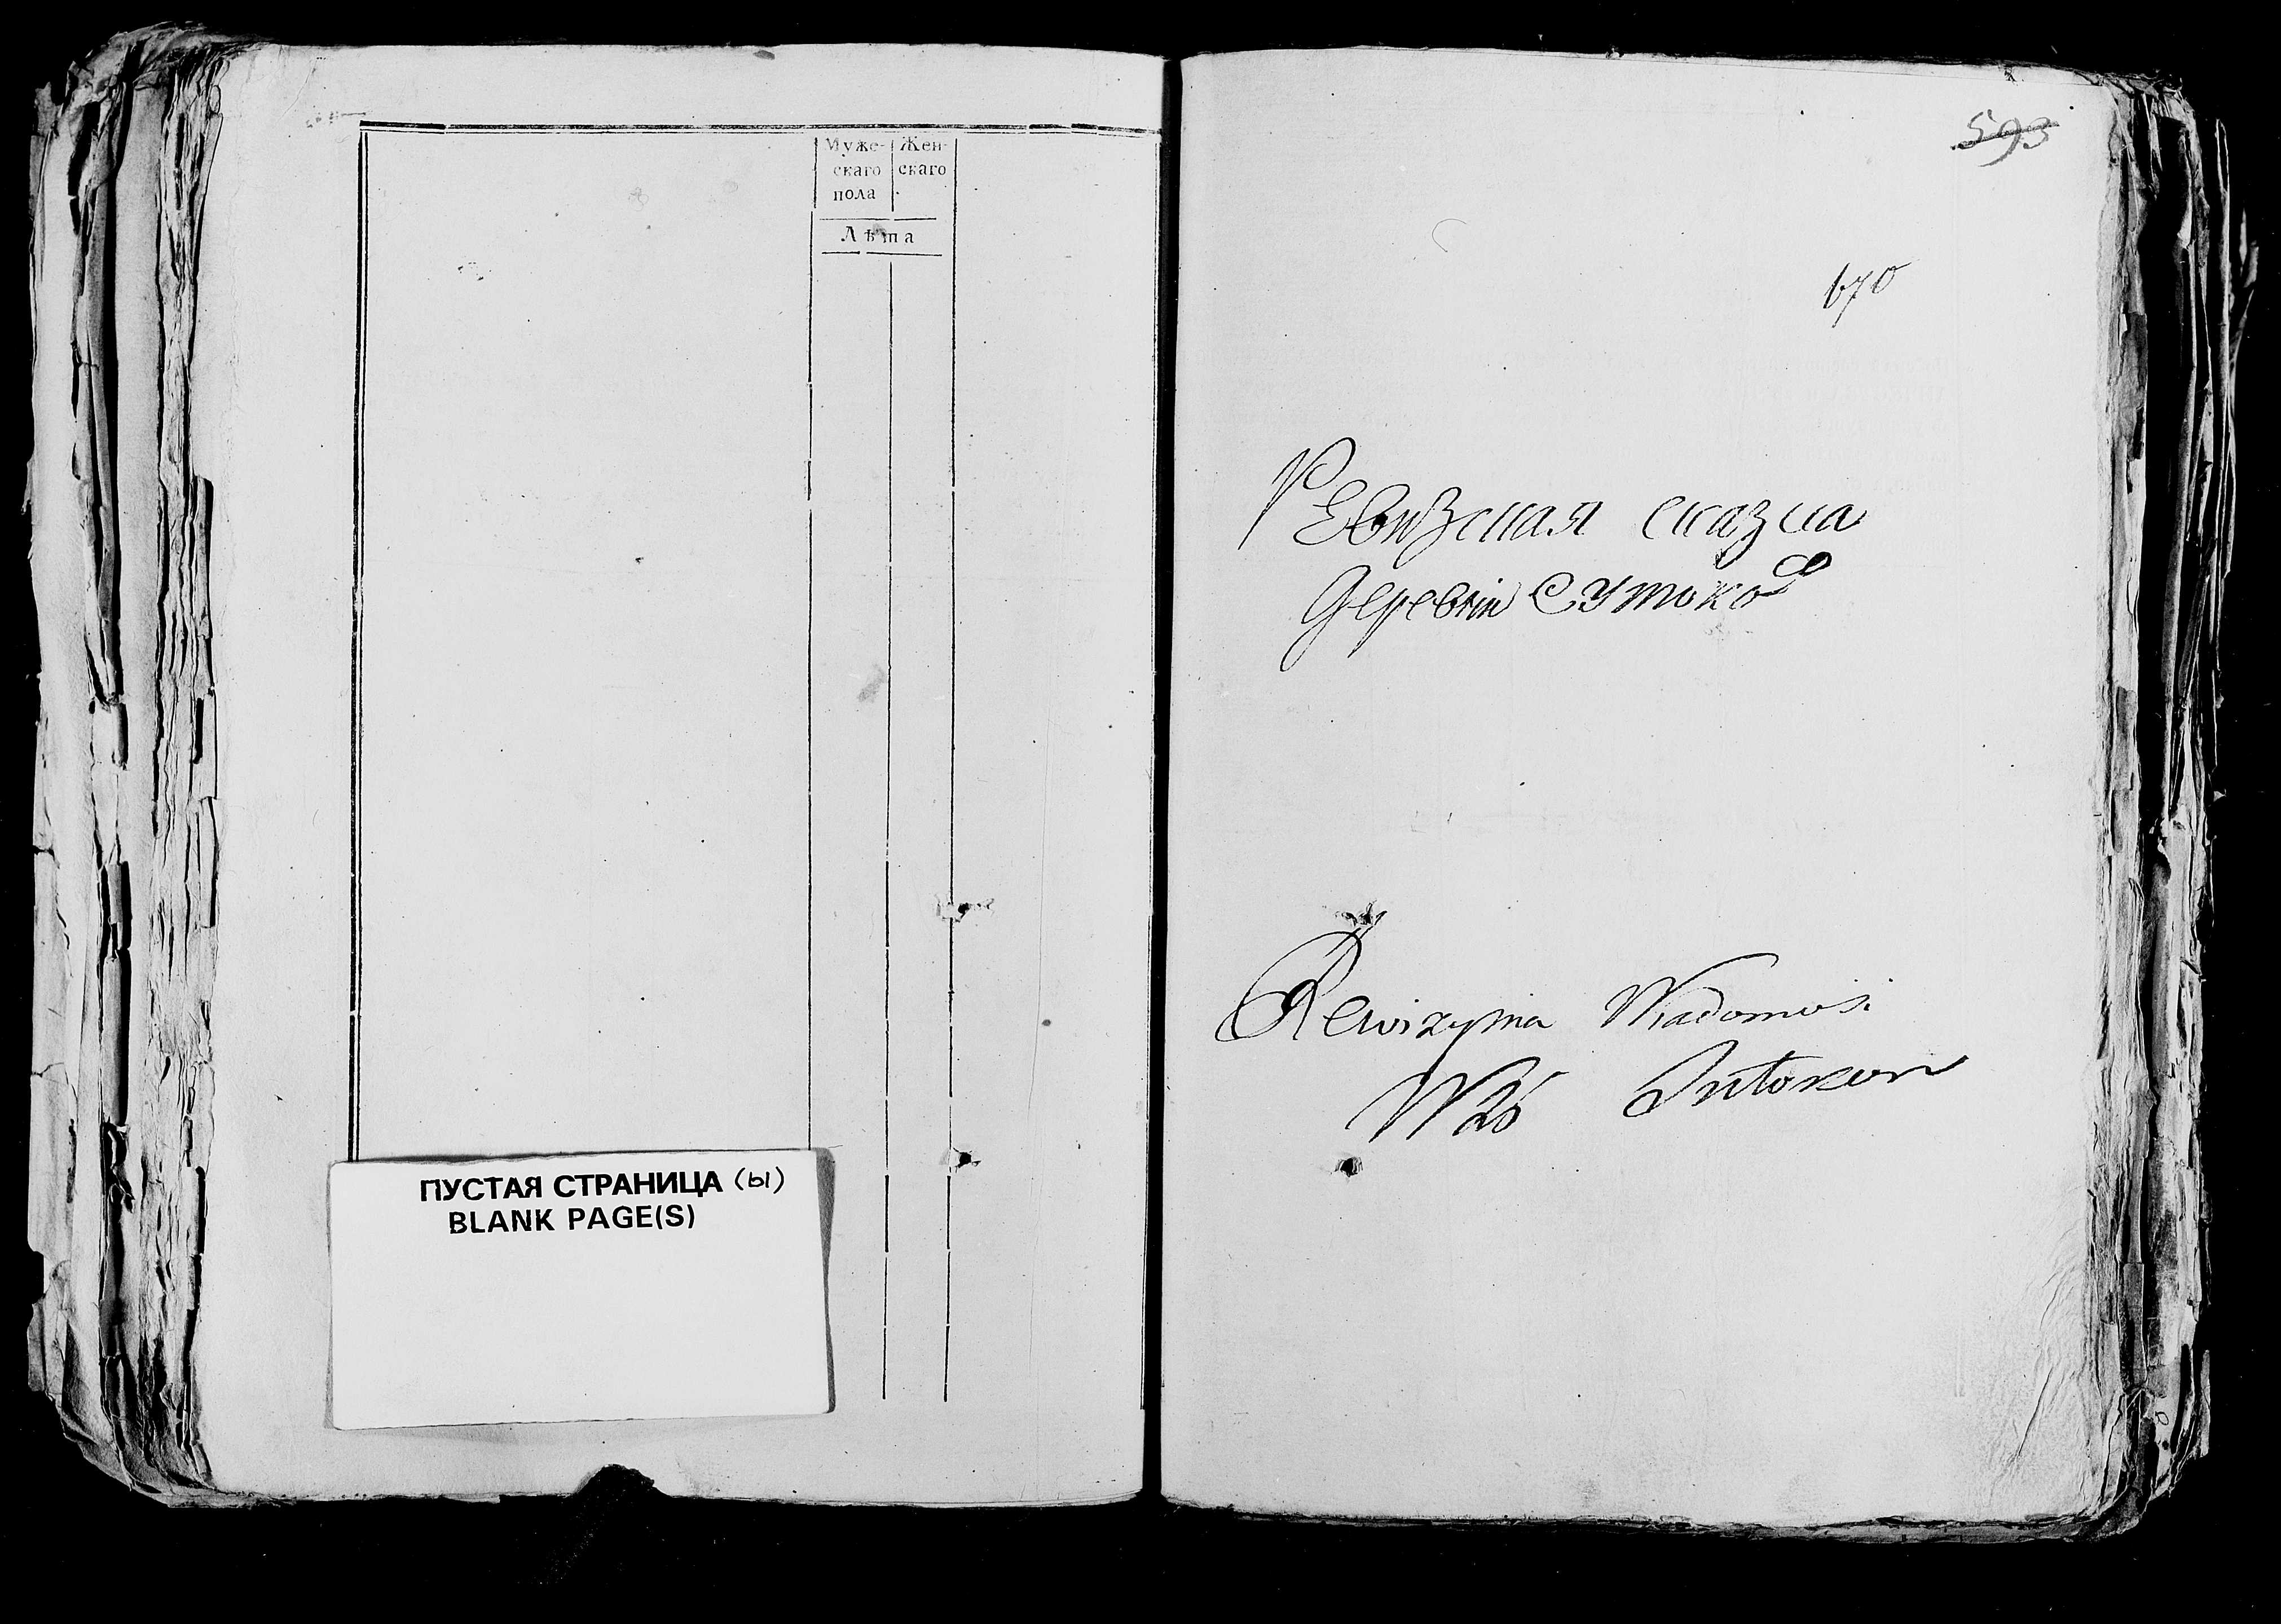 Муже- Жен-
скаго скаго
пола
Лѣта
ПУСТАЯ СТРАНИЦА (Ы)
BLANK PAGE(S)
593
670
Ревизская сказка
деревни Сутоков
Rewizyina Wiadomość
Wsi Sutokow